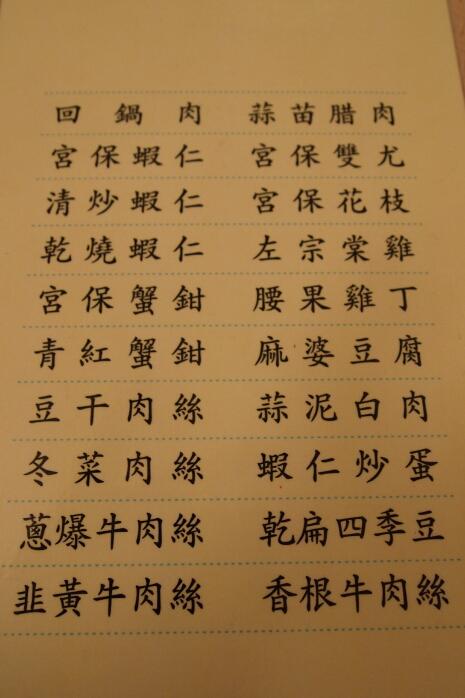 回鍋肉 蒜苗腊肉
宮保蝦仁 宮保雙尤
清炒蝦仁 宮保花枝
乾燒蝦仁 左宗棠雞
宮保蟹鉗 腰果雞丁
青紅蟹鉗 麻婆豆腐
豆干肉絲 蒜泥白肉
冬菜肉絲 蝦仁炒蛋
蔥爆牛肉絲 乾扁四季豆
韭黃牛肉絲 香根牛肉絲